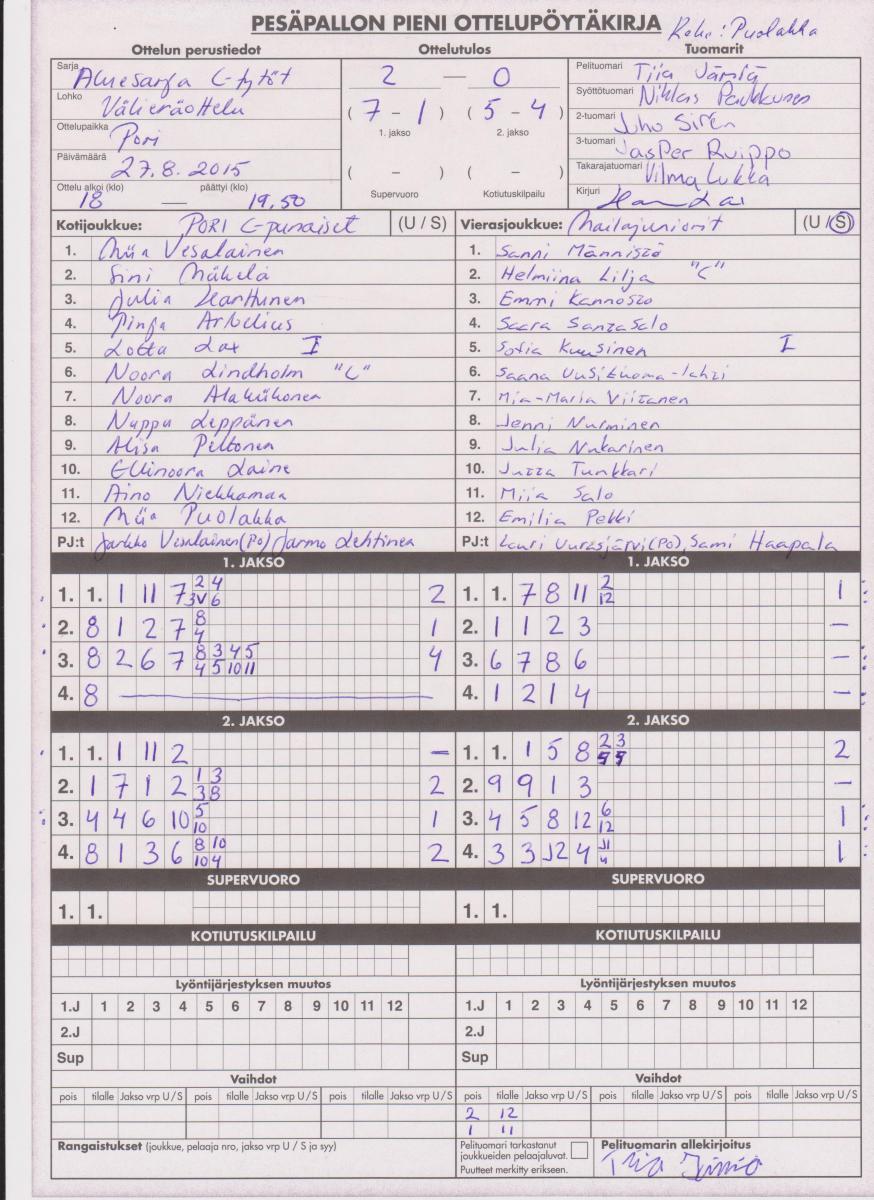 PESÄPALLON PIENI OTTELUPÖYTÄKIRJA Koho: Puolakka
Ottelun perustiedot Ottelutulos Tuomarit
Sarja Aluesarja C-tytöt 2 — 0 Pelituomari Tiia Järniä
Lohko Välieräottelu (7 - 1) (5 - 4) Syöttötuomari Niklas Paukkunen
1. jakso 2. jakso
Ottelupaikka Pori 2-tuomari Juho Siren
Päivämäärä 27.8.2015 ( - ) ( - ) 3-tuomari Jasper Ruippo
Takarajatuomari Vilma Lukka
Ottelu alkoi (klo) päättyi (klo) Supervuoro Kotiutuskilpailu Kirjuri
18 — 19.50
Kotijoukkue: PORI C-punaiset (U / S) Vierasjoukkue: Mailajuniorit (U / S)
1. Miia Vesalainen 1. Sanni Männistö
2. Sini Mäkelä 2. Helmiina Lilja "C"
3. Julia Harttunen 3. Emmi Kannosto
4. Pinja Arbelius 4. Saara Santasalo
5. Lotta Lax I 5. Sofia Kuusinen I
6. Noora Lindholm "C" 6. Saana Uusituoma-lahti
7. Noora Alakihonen 7. Mia-Maria Viitanen
8. Nuppu Leppänen 8. Jenni Nurminen
9. Alisa Peltonen 9. Julia Nukarinen
10. Ellinoora Laine 10. Jutta Tunkkari
11. Aino Niekkamaa 11. Miia Salo
12. Miia Puolakka 12. Emilia Pekki
PJ:t Jarkko Vesalainen (PO) Jarmo Lehtinen PJ:t Lauri Uurasjärvi (PO), Sami Haapala
1. JAKSO 1. JAKSO
1. 1. 1 11 7 2 4 2 1. 1. 7 8 11 2 1
3V 6 12
2. 8 1 2 7 8 1 2. 1 1 2 3 —
4
3. 8 2 6 7 8 3 4 5 4 3. 6 7 8 6 —
4 5 10 11
4. 8 — 4. 1 2 1 4 —
2. JAKSO 2. JAKSO
1. 1. 1 11 2 — 1. 1. 1 5 8 2 3 2
5 9
2. 1 7 1 2 1 3 2 2. 9 9 1 3 —
3 8
3. 4 4 6 10 5 1 3. 4 5 8 12 6 1
10 12
4. 8 1 3 6 8 10 2 4. 3 3 12 4 11 1
10 4 4
SUPERVUORO SUPERVUORO
1. 1. 1. 1.
KOTIUTUSKILPAILU KOTIUTUSKILPAILU
Lyöntijärjestyksen muutos Lyöntijärjestyksen muutos
1.J 1 2 3 4 5 6 7 8 9 10 11 12 1.J 1 2 3 4 5 6 7 8 9 10 11 12
2.J 2.J
Sup Sup
Vaihdot Vaihdot
pois tilalle Jakso vrp U / S pois tilalle Jakso vrp U / S pois tilalle Jakso vrp U / S pois tilalle Jakso vrp U / S pois tilalle Jakso vrp U / S pois tilalle Jakso vrp U / S
2 12
1 11
Rangaistukset (joukkue, pelaaja nro, jakso vrp U / S ja syy) Pelituomari tarkastanut Pelituomarin allekirjoitus
joukkueiden pelaajaluvat.
Puutteet merkitty erikseen.